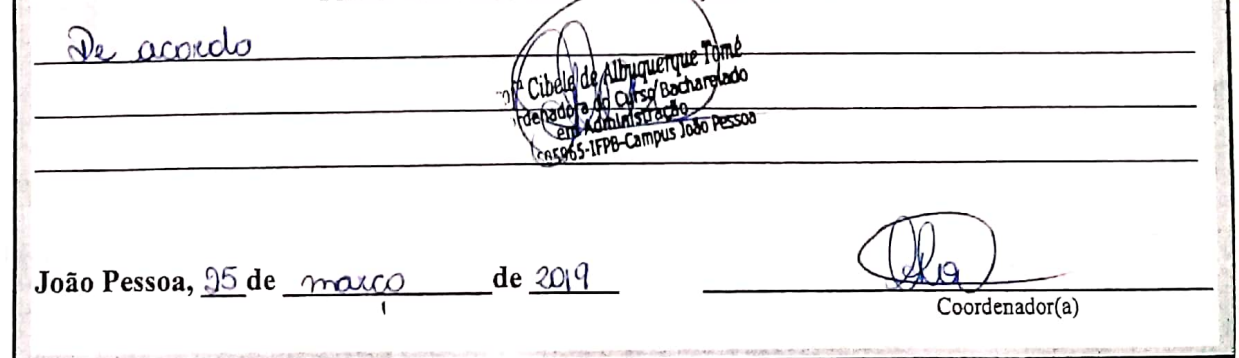 De acordo
Cibele de Albuquerque Tomé
rdenadora do Curso/Bacharelado
em Administração
-IFPB-Campus João Pessoa
João Pessoa, de março de 2019
Coordenador(a)